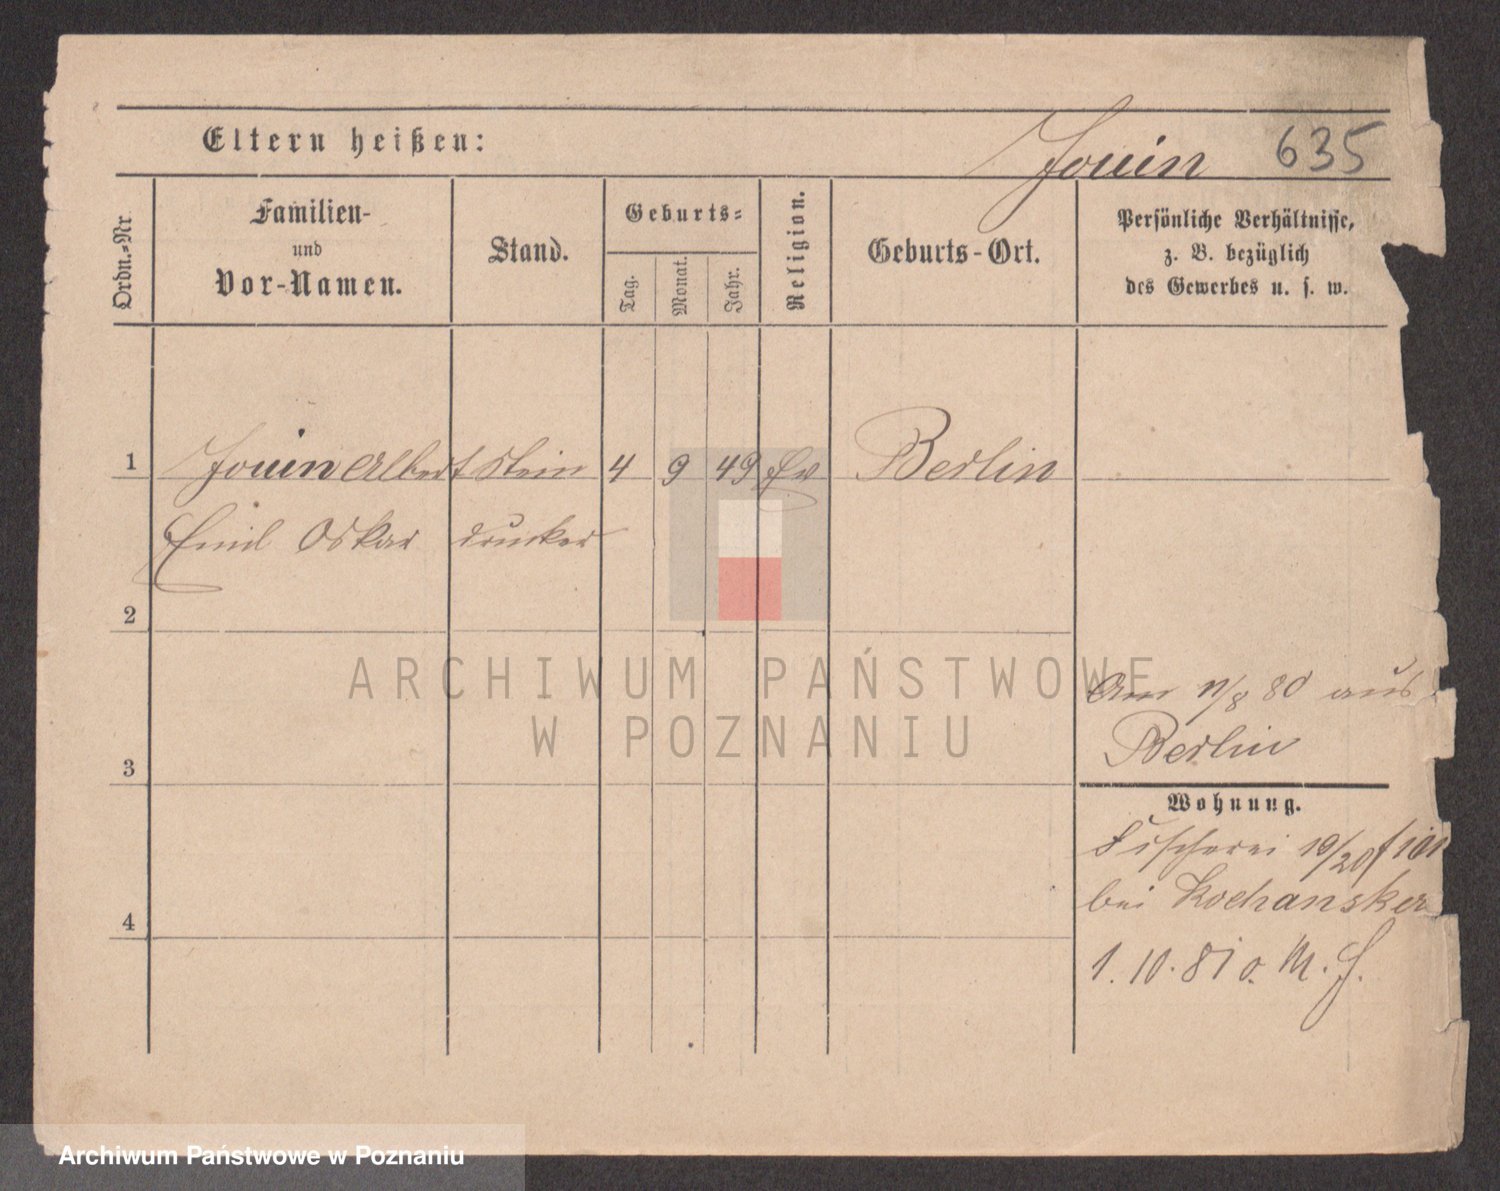 Eltern heißen:
Jouin 635
Ordn.=Nr.
Familien-
und
Vor-Namen.
Stand.
Geburts=
Tag.
Monat.
Jahr.
Religion.
Geburts-Ort.
Persönliche Verhältnisse,
z. B. bezüglich
des Gewerbes u. s. w.
1 Jouin Albert Stein 4 9 49 Ev Berlin
Emil Oskar drucker
2
Am 11/8 80 aus
Berlin
3
Wohnung.
Fischerei 19/20
bei Kochansker
4
1. 10. 81 o. M. F.
ARCHIWUM PAŃSTWOWE
W POZNANIU
Archiwum Państwowe w Poznaniu